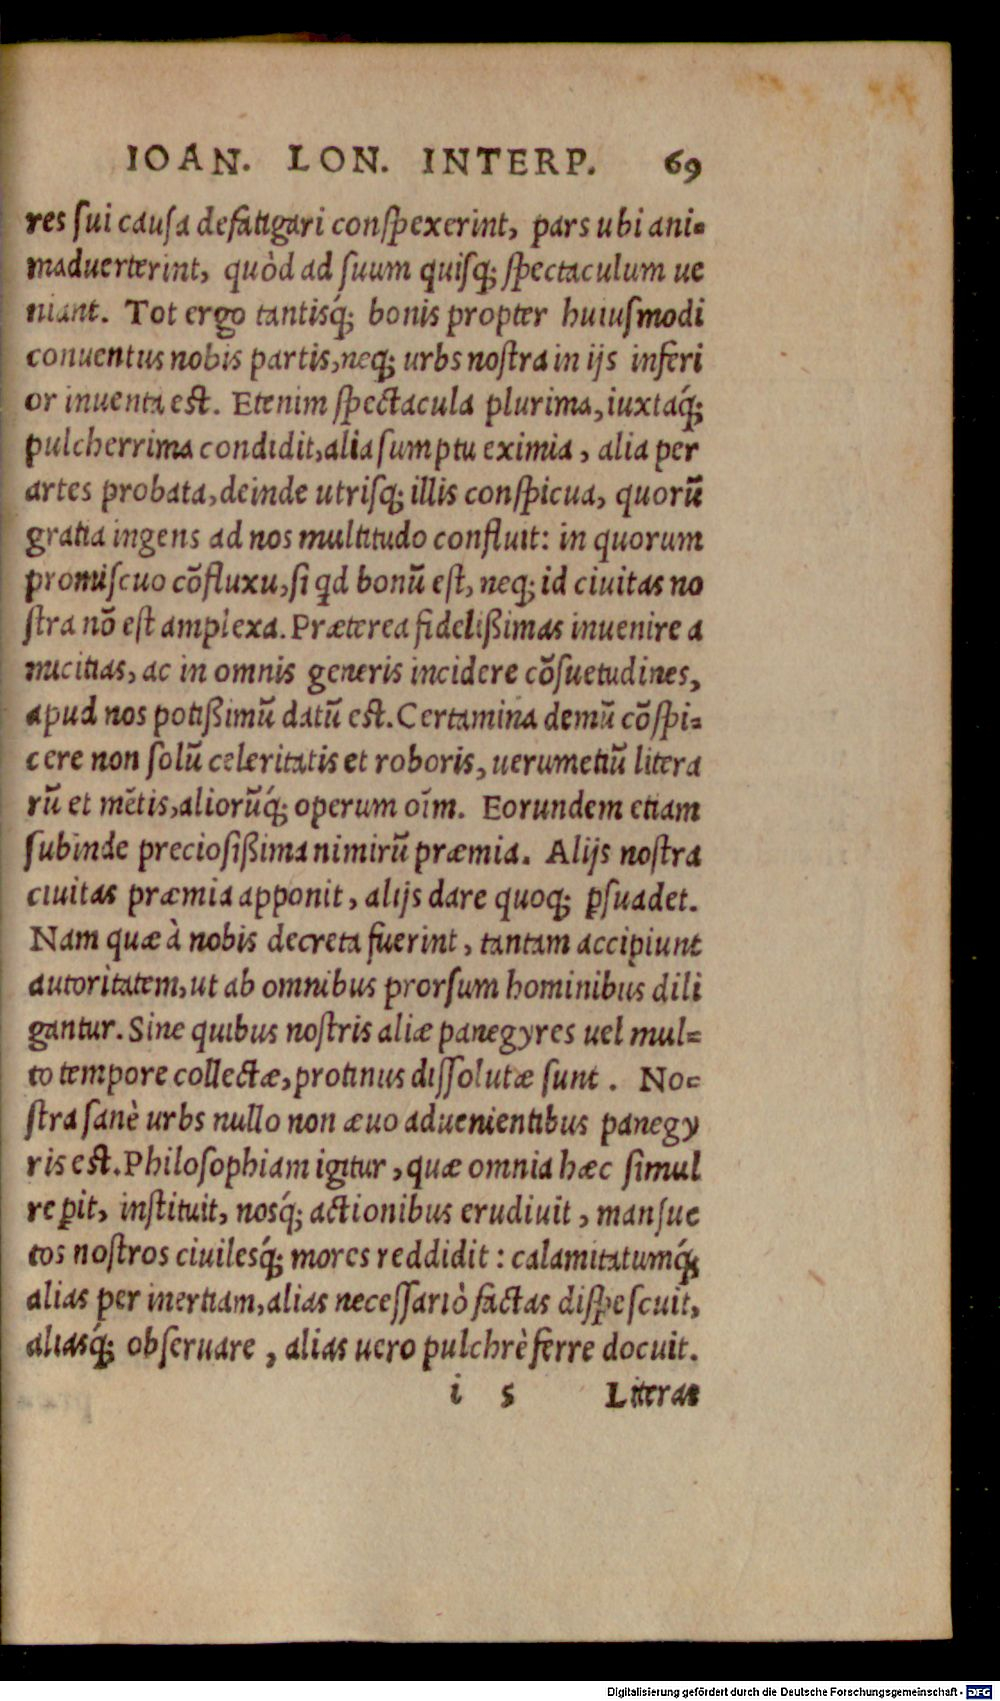 IOAN. LON. INTERP. 69
res sui causa defatigari conspexerint, pars ubi ani-
maduerterint, quòd ad suum quisq; spectaculum ue
niant. Tot ergo tantisq́; bonis propter huiusmodi
conuentus nobis partis, neq; urbs nostra in ijs inferi
or inuenta est. Etenim spectacula plurima, iuxtaq́;
pulcherrima condidit, alia sumptu eximia, alia per
artes probata, deinde utrisq; illis conspicua, quorũ
gratia ingens ad nos multitudo confluit: in quorum
promiscuo cõfluxu, si qd bonũ est, neq; id ciuitas no
stra nõ est amplexa. Præterea fidelißimas inuenire a
micitias, ac in omnis generis incidere cõsuetudines,
apud nos potißimũ datũ est. Certamina demũ cõspi-
cere non solũ celeritatis et roboris, uerumetiũ litera
rũ et mẽtis, aliorũq́; operum oīm. Eorundem etiam
subinde preciosißima nimirũ præmia. Alijs nostra
ciuitas præmia apponit, alijs dare quoq; ꝑsuadet.
Nam quæ à nobis decreta fuerint, tantam accipiunt
autoritatem, ut ab omnibus prorsum hominibus dili
gantur. Sine quibus nostris aliæ panegyres uel mul-
to tempore collectæ, protinus dissolutæ sunt. No-
stra sanè urbs nullo non æuo aduenientibus panegy
ris est. Philosophiam igitur, quæ omnia hæc simul
reꝑit, instituit, nosq́; actionibus erudiuit, mansue
tos nostros ciuilesq́; mores reddidit: calamitatumq́;
alias per inertiam, alias necessariò factas dispescuit,
aliasq́; obseruare, alias uero pulchrè ferre docuit.
i 5 Literas
Digitalisierung gefördert durch die Deutsche Forschungsgemeinschaft - DFG